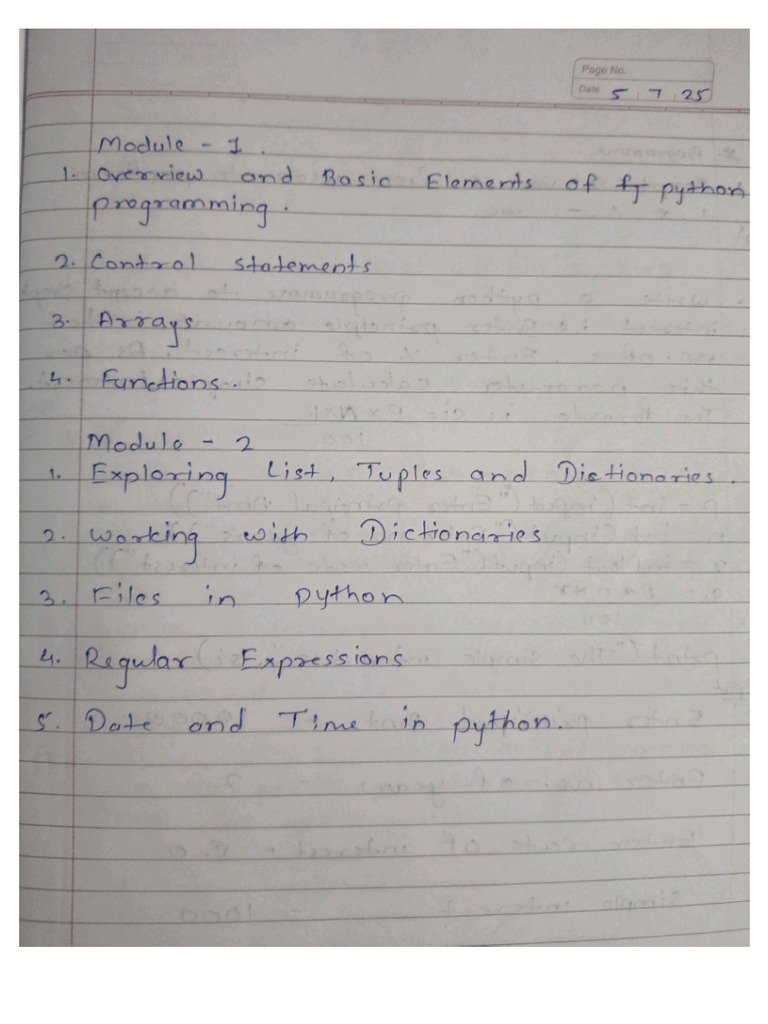 Page No.
Date 5 7 25
Module - 1.
1. Overview and Basic Elements of python
programming.
2. Control statements
3. Arrays
4. Functions.
Module - 2
1. Exploring List, Tuples and Dictionaries.
2. Working with Dictionaries
3. Files in python
4. Regular Expressions
5. Date and Time in python.